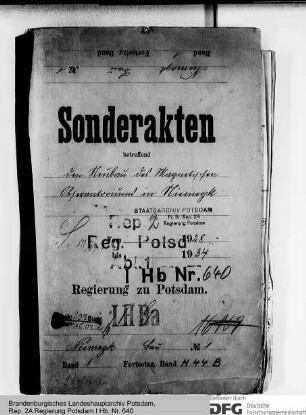 Band 1 Fortsetzg. Band
Niemegk Bau № 1
Sonderakten
betreffend
den Neubau des Magnetischen
Observatoriums in Niemegk
STAATSARCHIV POTSDAM
Pr. Br. Rep. 2A
Regierung Potsdam
Rep 2
Reg. Potsd
1928
bis 1934
Abt. 1
I Hb Nr. 640
Regierung zu Potsdam.
I Hba
Niemegk Bau № 1
Band 1 Fortsetzg. Band M 44 B
Brandenburgisches Landeshauptarchiv Potsdam,
Rep. 2A Regierung Potsdam I Hb, Nr. 640
Gefördert durch
DFG Deutsche
Forschungsgemeinschaft